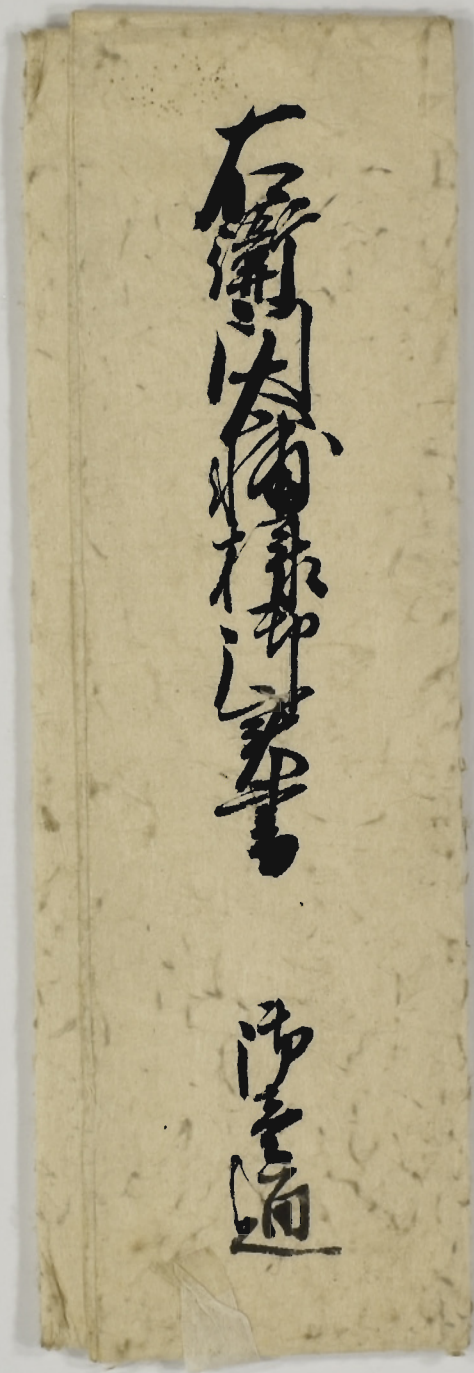 右衛門大輔様御裏書 御壱通